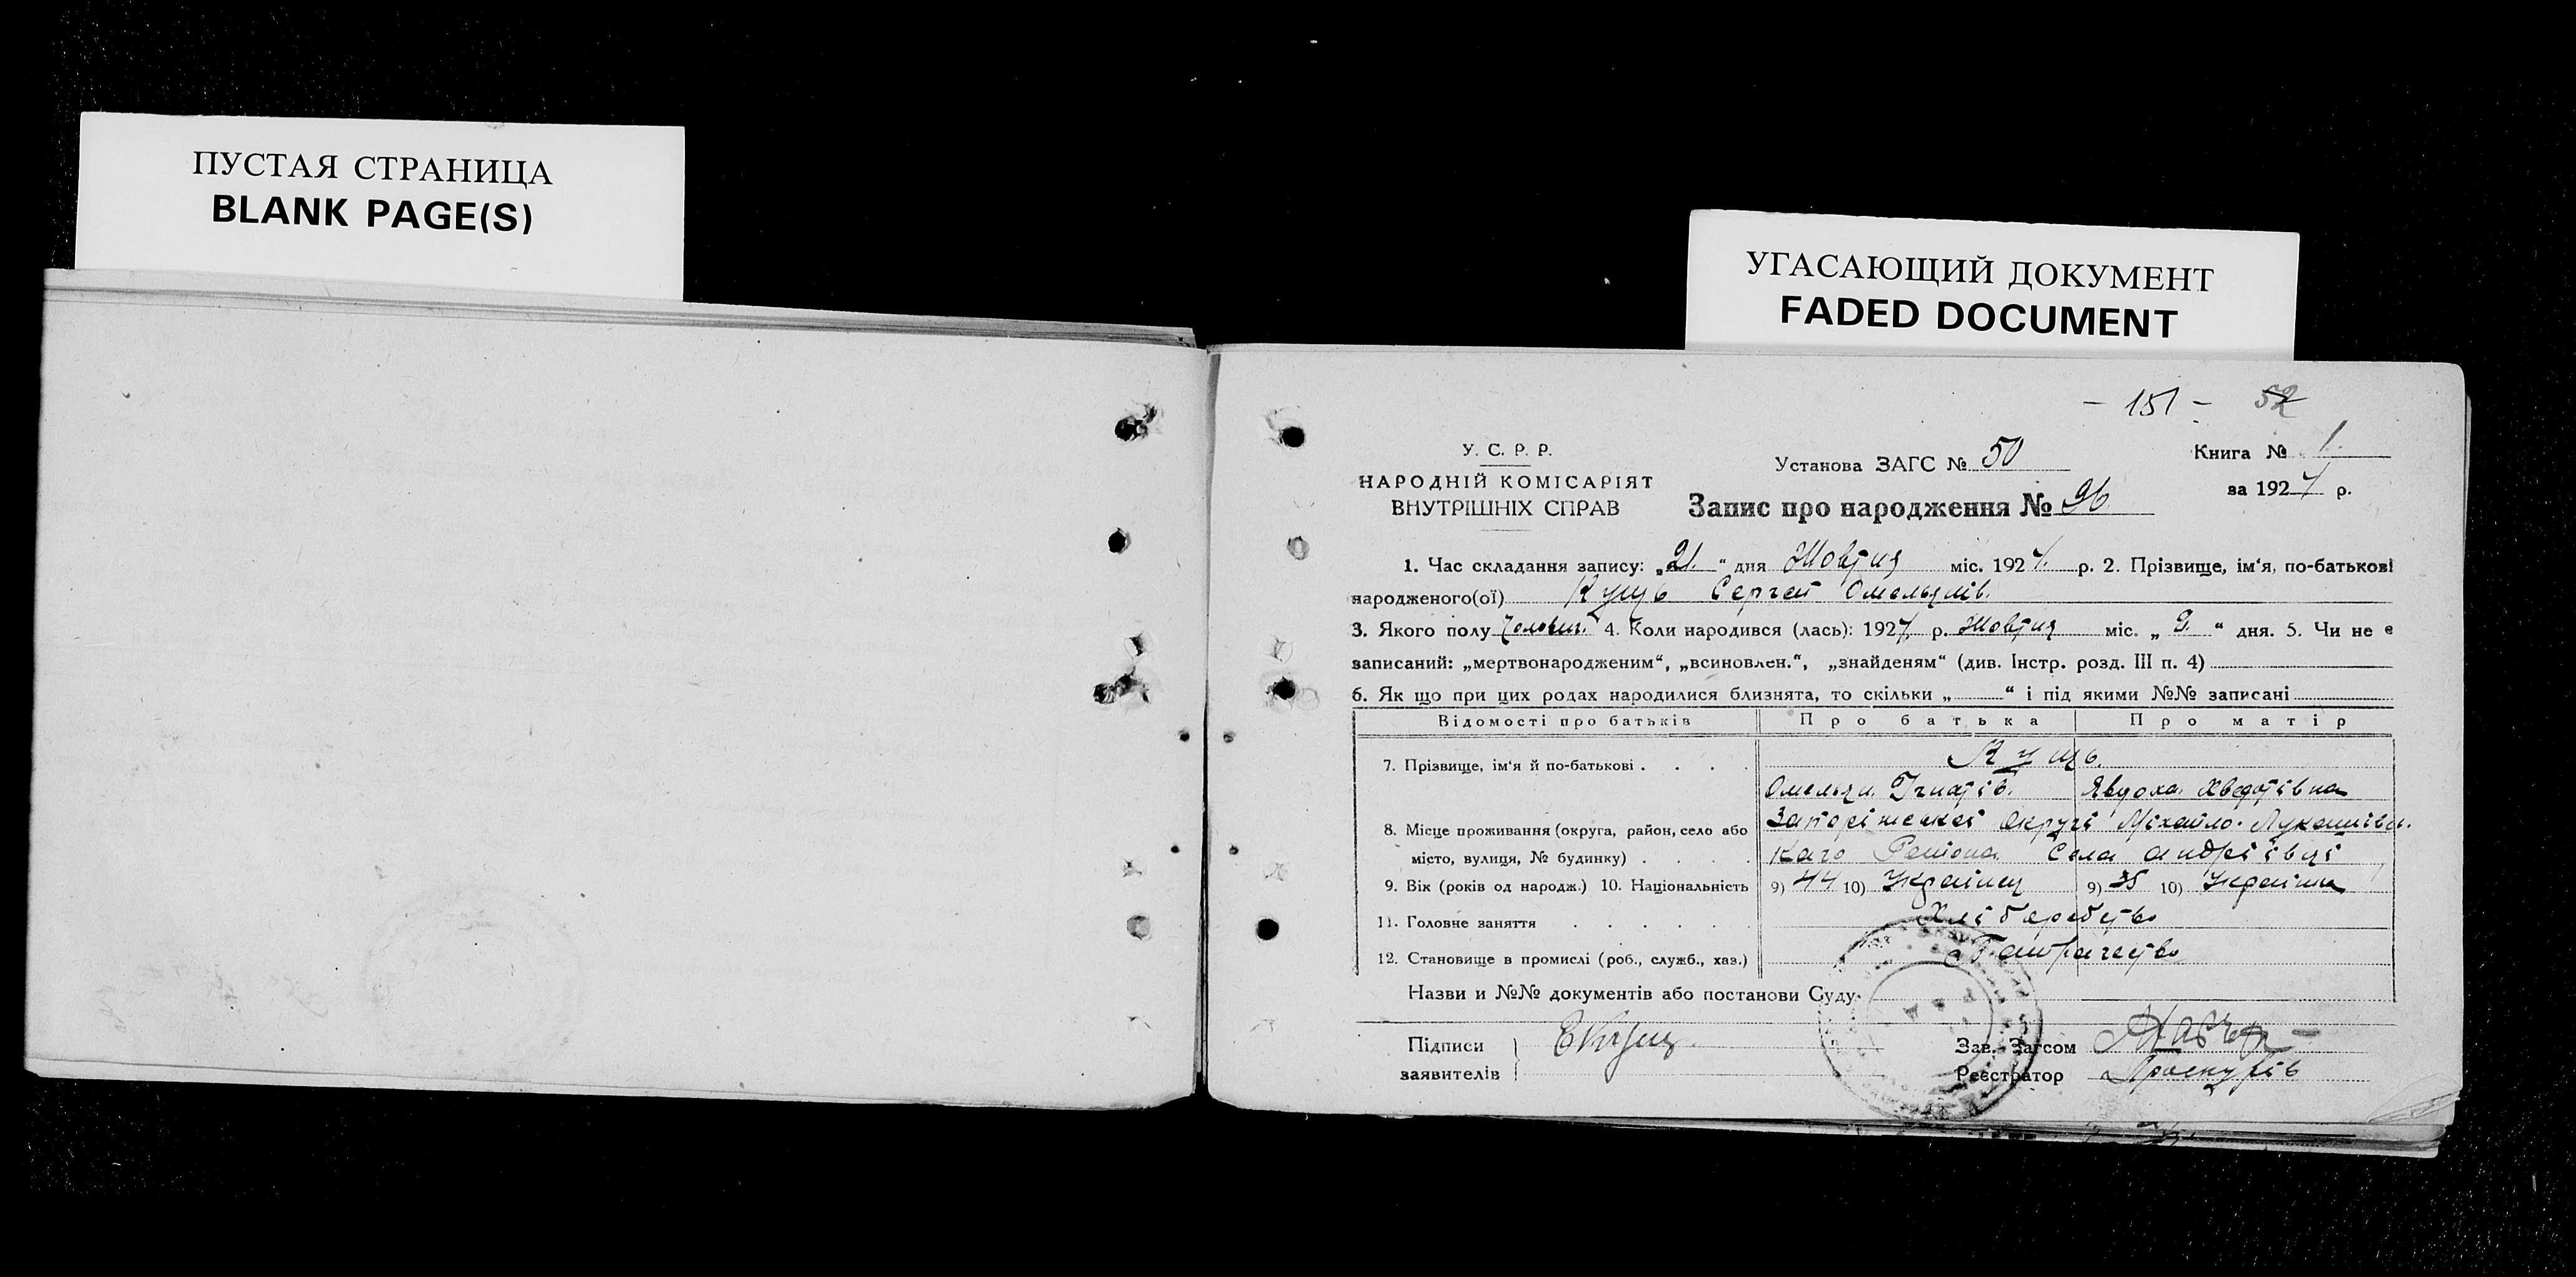 ПУСТАЯ СТРАНИЦА
BLANK PAGE(S)
УГАСАЮЩИЙ ДОКУМЕНТ
FADED DOCUMENT
- 151 - 52
У. С. Р. Р.
НАРОДНІЙ КОМІСАРІЯТ
ВНУТРІШНІХ СПРАВ
Установа ЗАГС № 50
Запис про народження № 96
Книга № 1.
за 1927 р.
1. Час складання запису: „21.“ дня Жовтня міс. 1927. р. 2. Прізвище, ім‘я, по-батькові
народженого(ої) Кущь Сергей Омельянів.
3. Якого полу Чоловіч. 4. Коли народився (лась): 1927 р. Жовтня міс. „ 9. “ дня. 5. Чи не є
записаний: „мертвонародженим“, „всиновлен.“, „знайденям“ (див. Інстр. розд. III п. 4)
6. Як що при цих родах народилися близнята, то скільки „ “ і під якими №№ записані
Відомості про батьків Про батька Про матір
7. Прізвище, ім‘я й по-батькові . . . . Кущь.
Омельян. Ігнатів. Явдоха Хведотівна
8. Місце проживання (округа, район, село або Запоріжської округі Міхайло-Лукашівс.
місто, вулиця, № будинку) . . . . Кого Района Села Андріївці
9. Вік (років од народж.) 10. Національність 9) 44 10) Українец 9) 35 10) Українка
11. Головне заняття . . . . . . Хліборобство
12. Становище в промислі (роб., служб., хаз.)
Назви и №№ документів або постанови Суду
Підписи ЕКущ
заявителів
Зав. Загсом
Реєстратор Проскурів